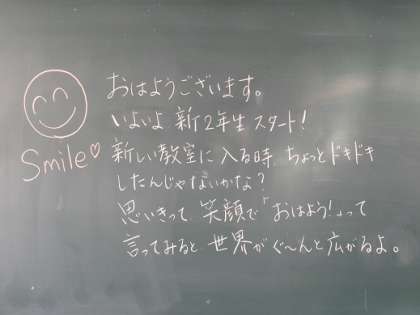 おはようございます。
いよいよ新2年生スタート！
Smile♡
新しい教室に入る時、ちょっとドキドキ
したんじゃないかな？
思いきって、笑顔で「おはよう！」って
言ってみると世界がぐ〜んと広がるよ。